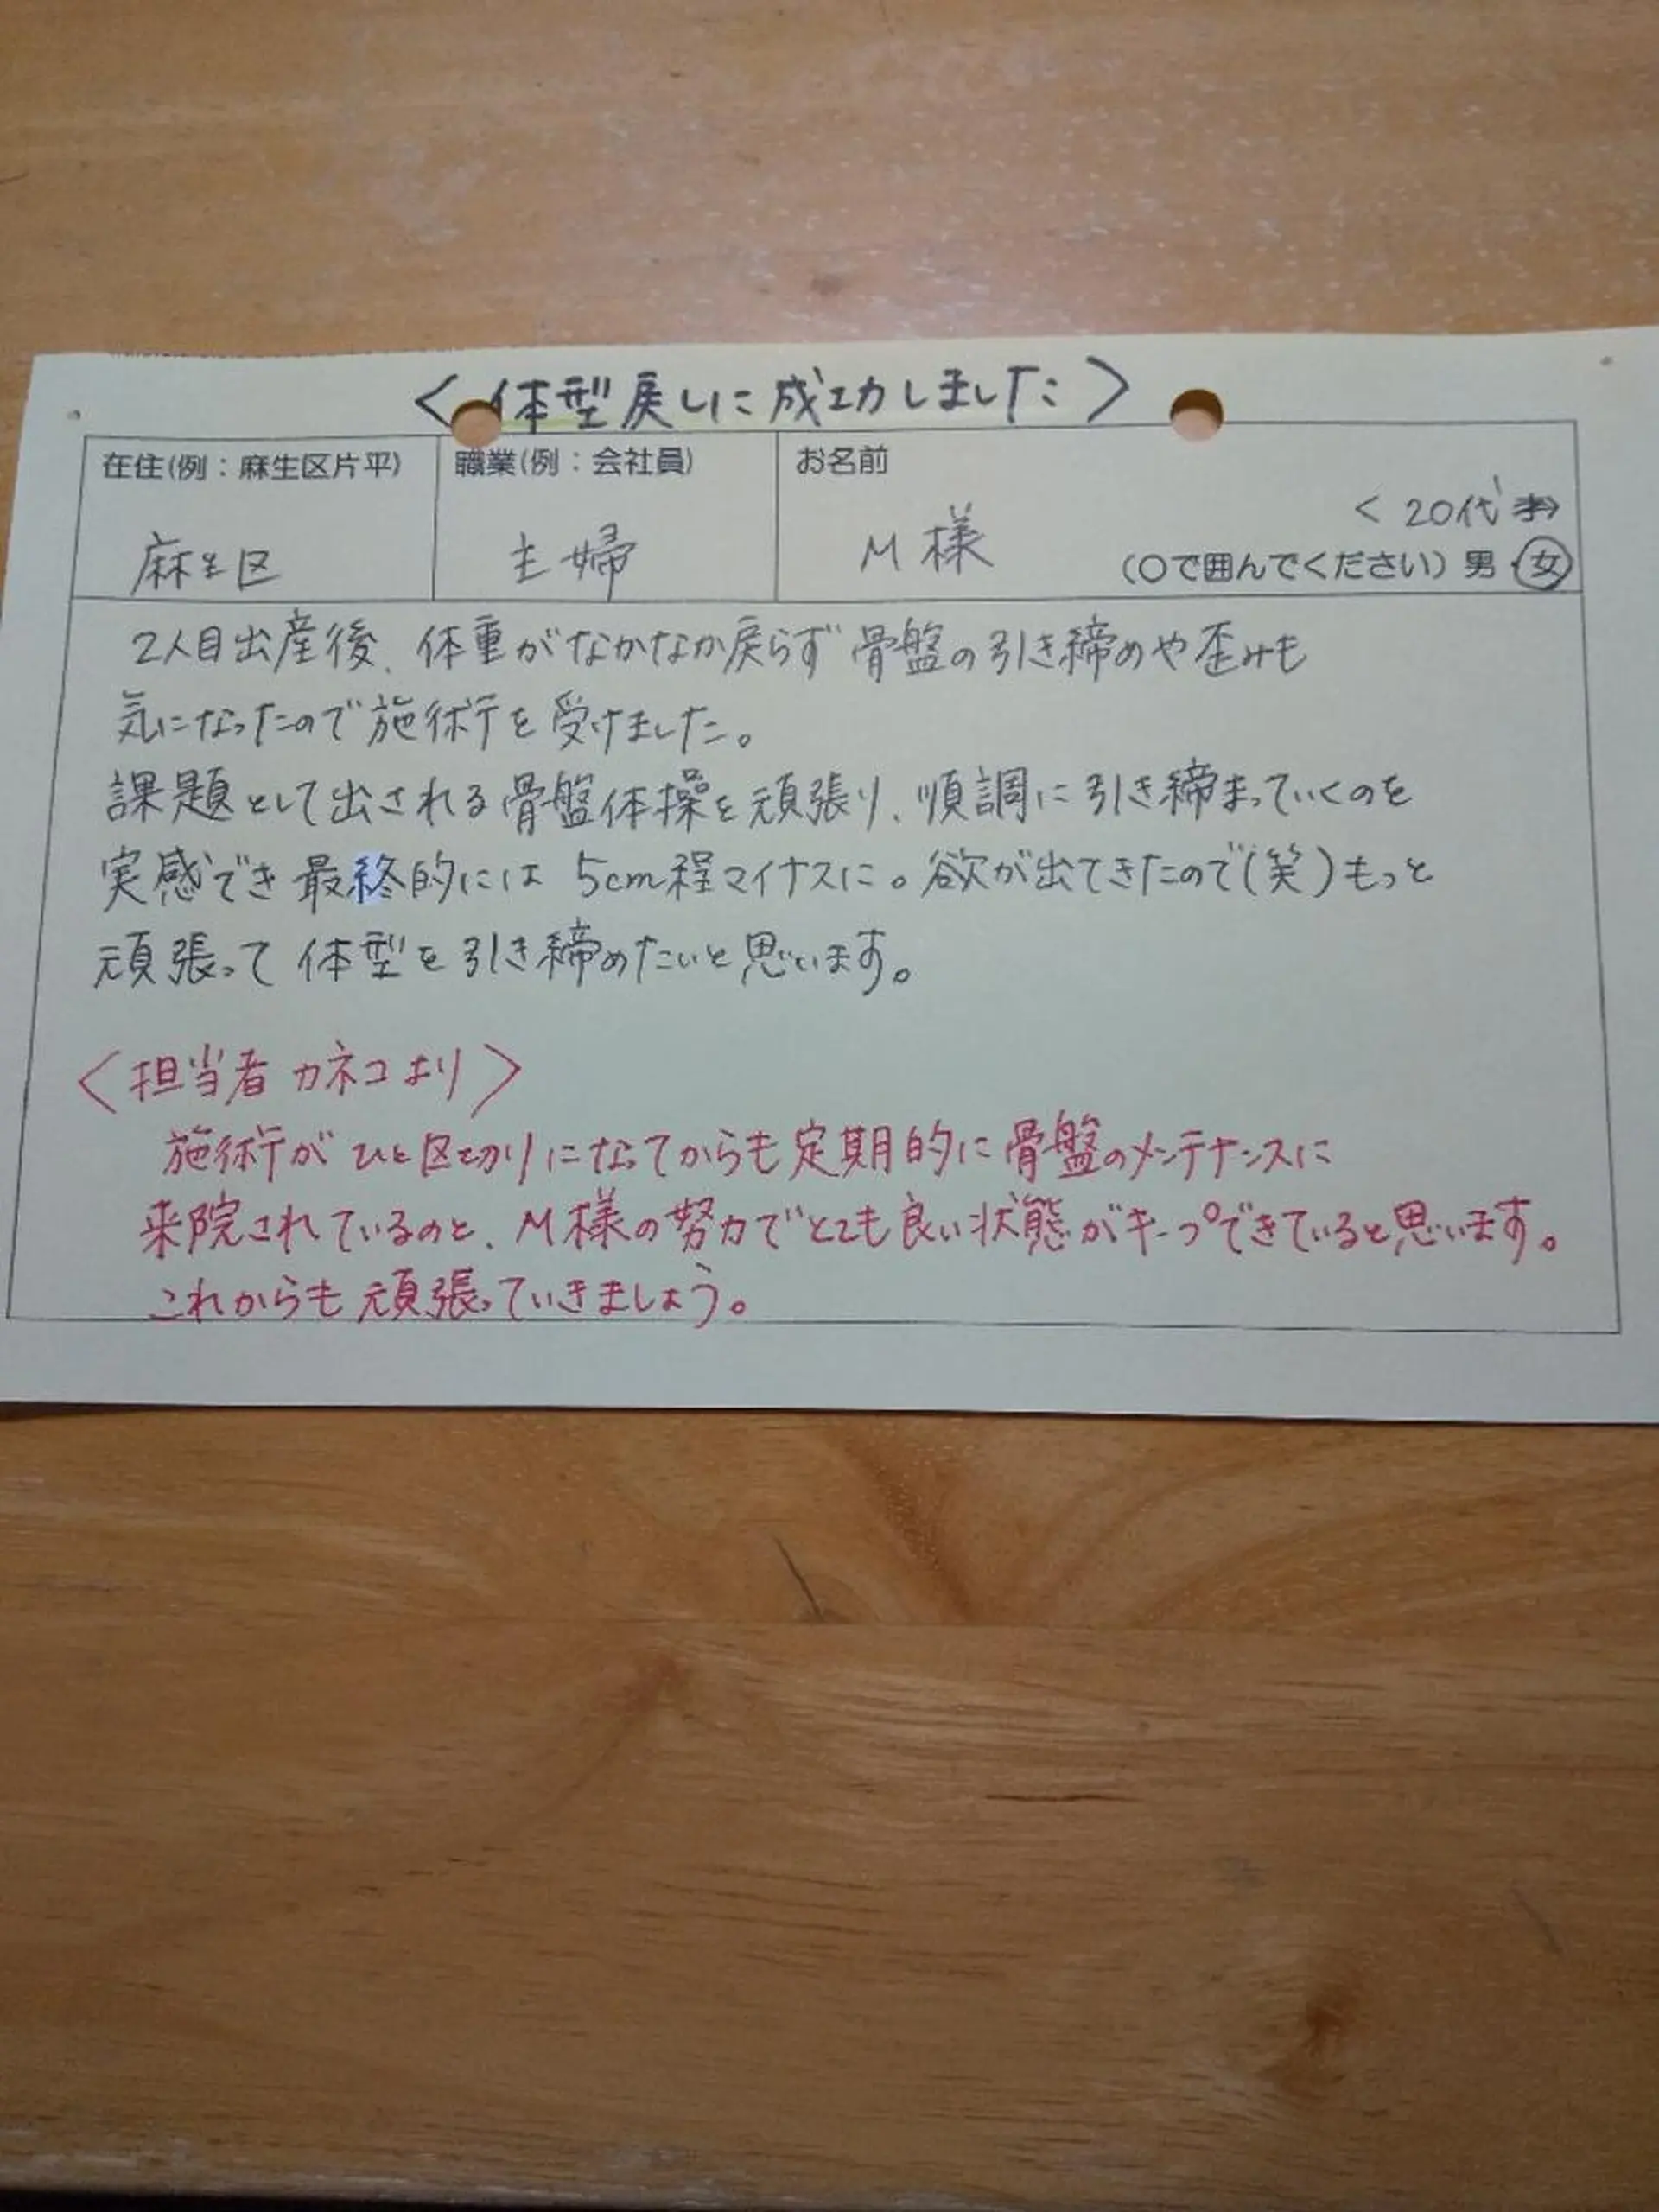 <体型戻しに成功しました>
在住(例：麻生区片平) 職業(例：会社員) お名前
<20代
麻生区 主婦 M様 (○で囲んでください) 男・女
2人目出産後、体重がなかなか戻らず骨盤の引き締めや歪みも
気になったので施術を受けました。
課題として出される骨盤体操を頑張り、順調に引き締まっていくのを
実感でき最終的には5cm程マイナスに。欲が出てきたので(笑)もっと
頑張って体型を引き締めたいと思います。
<担当者 カネコより>
施術がひと区切りになってからも定期的に骨盤のメンテナンスに
来院されているのと、M様の努力でとても良い状態がキープできていると思います。
これからも頑張っていきましょう。